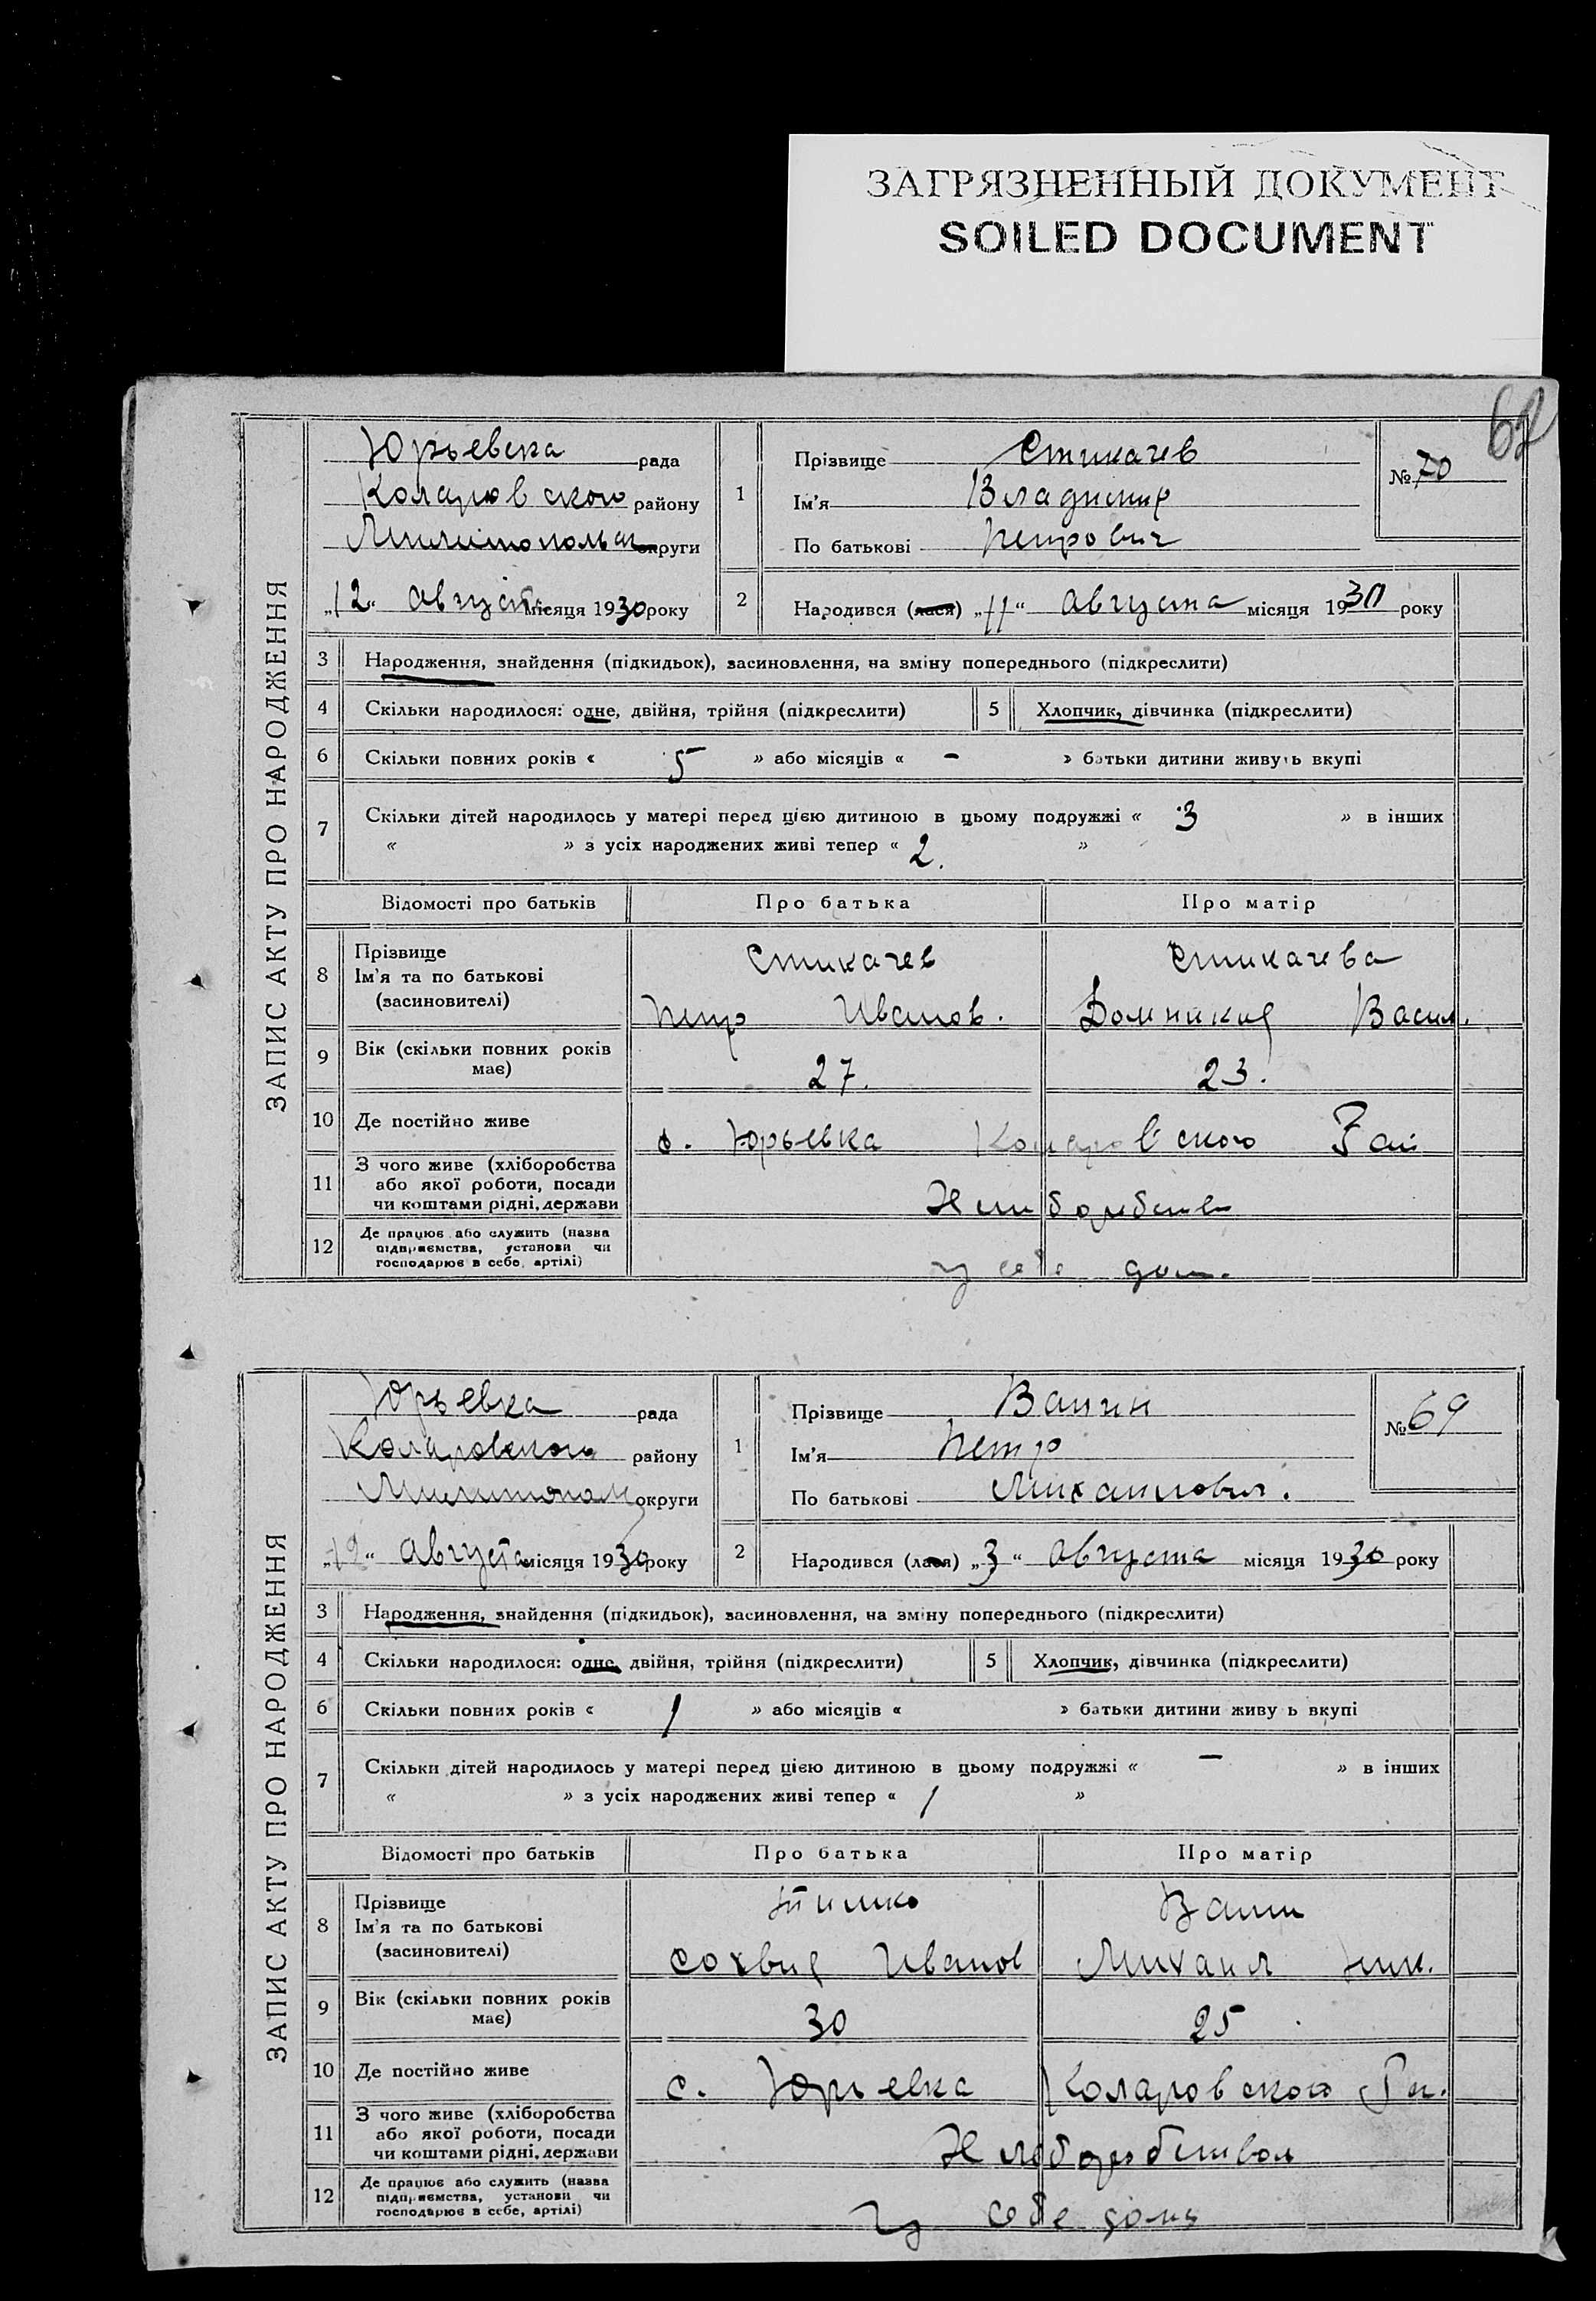 ЗАГРЯЗНЕННЫЙ ДОКУМЕНТ
SOILED DOCUMENT
62
ЗАПИС АКТУ ПРО НАРОДЖЕННЯ
Юрьевска рада
Коларовского району
Мелитопольск округи
„12“ Августа місяця 1930 року
1
Прізвище Стикачев
Ім'я Владимир
По батькові Петрович
№ 70
2
Народився (лася) „11“ Августа місяця 1930 року
3 Народження, знайдення (підкидьок), засиновлення, на зміну попереднього (підкреслити)
4 Скільки народилося: одне, двійня, трійня (підкреслити) 5 Хлопчик, дівчинка (підкреслити)
6 Скільки повних років « 5 » або місяців « - » батьки дитини живуть вкупі
7 Скільки дітей народилось у матері перед цією дитиною в цьому подружжі « 3 » в інших
« » з усіх народжених живі тепер « 2. »
Відомості про батьків Про батька Про матір
8 Прізвище
Ім'я та по батькові
(засиновителі)
Стикачев
Петр Иванов.
Стикачева
Домникия Васил.
9 Вік (скільки повних років має) 27. 23.
10 Де постійно живе с. Юрьевка Коларовского Рай
11 З чого живе (хліборобства
або якої роботи, посади
чи коштами рідні, держави
12 Де працює або служить (назва
підприємства, установи чи
господарює в себе, артілі)
у себе дом.
ЗАПИС АКТУ ПРО НАРОДЖЕННЯ
Юрьевка рада
Коларовского району
Мелитопол округи
„12“ Августа місяця 1930 року
1
Прізвище
Ім'я Петр
По батькові Михаилович.
№ 69
2
Народився (лася) „3“ Августа місяця 1930 року
3 Народження, знайдення (підкидьок), засиновлення, на зміну попереднього (підкреслити)
4 Скільки народилося: одне, двійня, трійня (підкреслити) 5 Хлопчик, дівчинка (підкреслити)
6 Скільки повних років « 1 » або місяців « » батьки дитини живу ь вкупі
7 Скільки дітей народилось у матері перед цією дитиною в цьому подружжі « — » в інших
« » з усіх народжених живі тепер « 1 »
Відомості про батьків Про батька Про матір
8 Прізвище
Ім'я та по батькові
(засиновителі)
Иванов
Михаил Ник.
9 Вік (скільки повних років має) 30 25
10 Де постійно живе с. Юрьевка Коларовского
11 З чого живе (хліборобства
або якої роботи, посади
чи коштами рідні, держави
12 Де працює або служить (назва
підприємства, установи чи
господарює в себе, артілі)
у себе дома